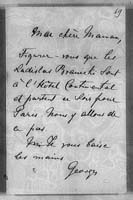 69
Ma chère Maman,
Figurez-vous que les
Ladislas Branicki sont
à l'Hôtel Continental
et partent ce soir pour
Paris. Nous y allons de
ce pas.
Je vous baise
les mains
Georges